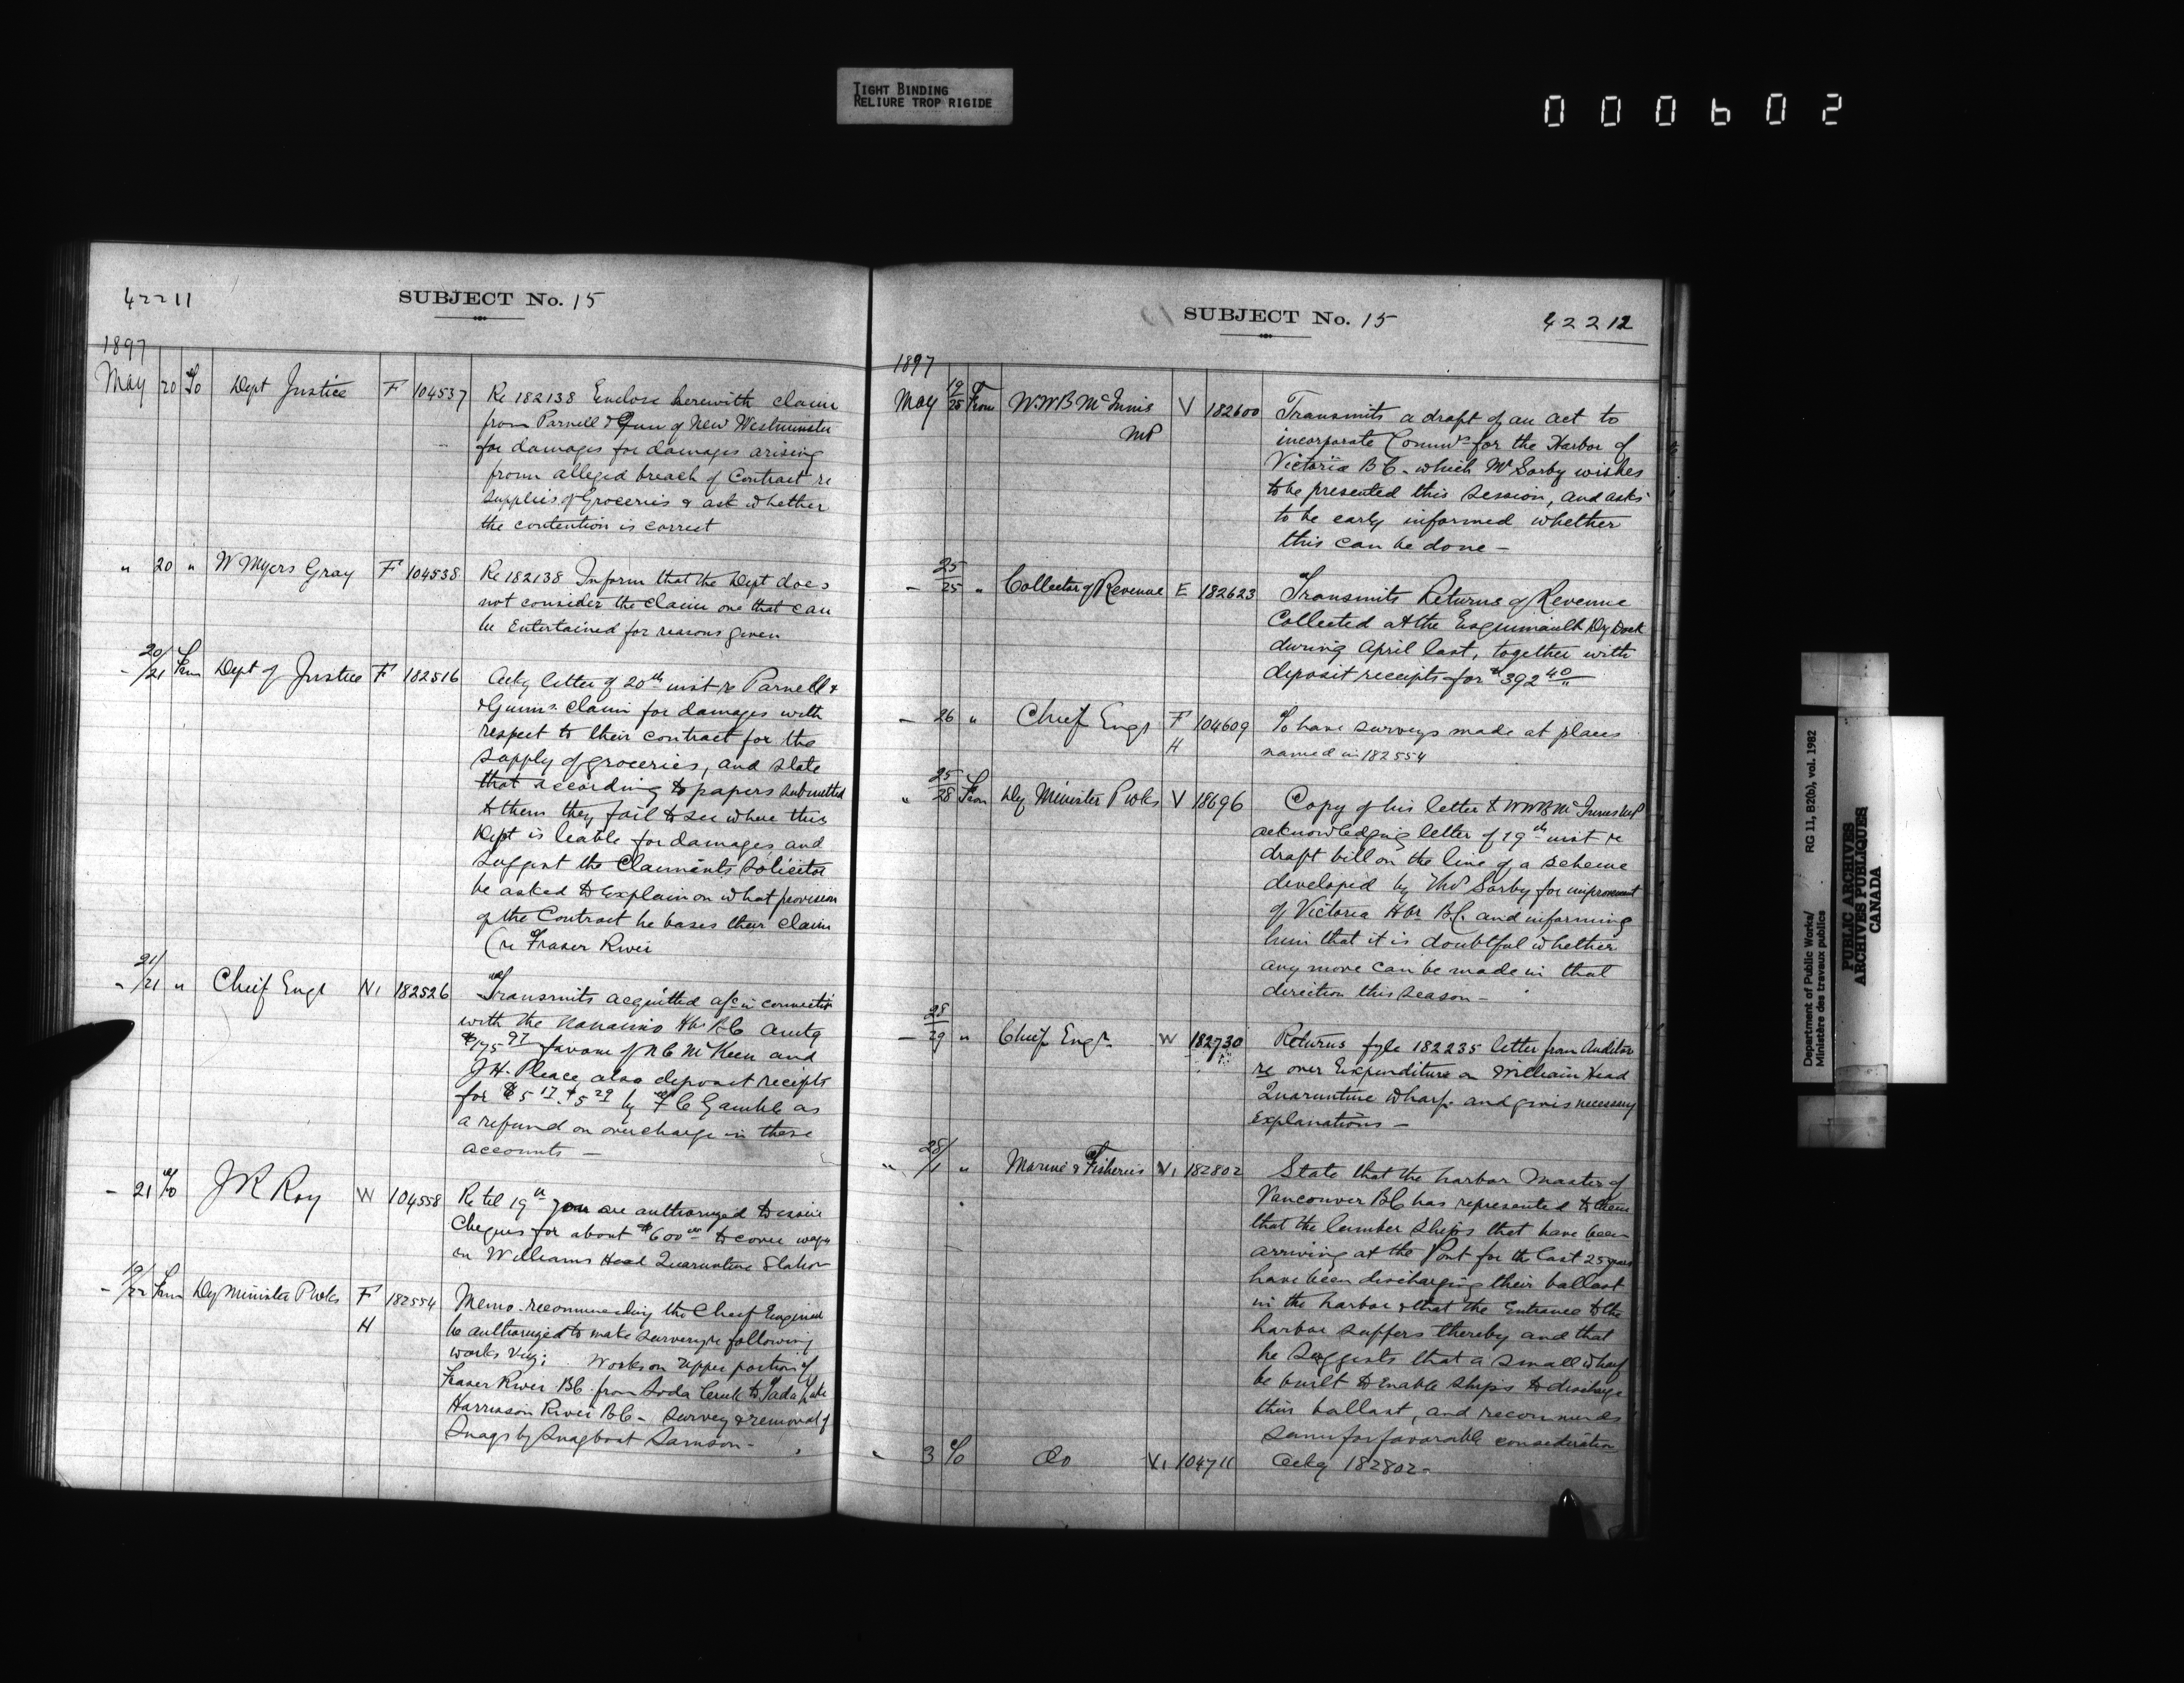 TIGHT BINDING
RELIURE TROP RIGIDE
000602
42211
SUBJECT No. 15
1897
May 20 To Dept Justice F 104537 Re 182138 Enclose herewith claim
from Parnell & Gunn of New Westminster
for damages for damages arising
from alleged breach of Contract re
supplies of Groceries & ask whether
the contention is correct
" 20 " W Myers Gray F 104538 Re 182138 Inform that the Dept does
not consider the claim one that can
be Entertained for reasons given
- 20/21 From Dept of Justice F 182516 Ackg letter of 20th inst re Parnell &
& Gunns claim for damages with
respect to their contract for the
supply of groceries, and state
that according to papers submitted
to them they fail to see where this
Dept is leable for damages and
suggest the Claimants Solicitor
be asked to explain on what provision
of the Contract he bases their claim
(re Fraser River
" 21/21 " Chief Engr N1 182526 Transmits acquitted a/c in connection
with the Nanaimo Hbr BC amtg
$175 97 favour of N C McKeen and
J H. Pleace, also deposit receipts
for $5 17 $5 29 by F C Gamble as
a refund on overcharge in these
accounts -
- 21 To J R Roy W 104558 Re tel 19th you are authorized to issue
Cheques for about $600 00 to cover wages
on Williams Head Quarantine Station
- 19/22 From Dy Minister P Wks F 182554 Memo. recommending the Chief Engineer
H be authorized to make surveys re following
works viz: Works on upper portion of
Fraser River BC. from Soda Creek to
Harrison River B.C. - survey & removal of
Snags by Snagboat Samson -
SUBJECT No. 15
42212
1897
May 19/25 From W.W.B McInnis V 182600 Transmits a draft of an act to
MP incorporate Commrs for the Harbor of
Victoria B C - which Mr Sorby wishes
to be presented this session, and asks
to be early informed whether
this can be done -
- 25/25 " Collector of Revenue E 182623 Transmits Returns of Revenue
Collected at the Esquimault Dry Dock
during April last, together with
deposit receipts for $392 40
- 26 " Chief Engr F 104609 To have surveys made at places
H named in 182554
" 25/28 From Dy Minister P Wks V 18696 Copy of his letter to WWB McInnes MP
acknowledging letter of 19th inst re
draft bill on the line of a scheme
developed by Thos Sorby for improvement
of Victoria Hbr B.C. and informing
him that it is doubtful whether
any move can be made in that
direction this season -
- 28/29 " Chief Engr W 182730 Returns fyle 182235 letter from Auditor
re over Expenditure on William Head
Quarantine Wharf. and gives necessary
explanations -
" 28/1 " Marine & Fisheries V1 182802 State that the harbor Master of
Vancouver BC has represented to them
that the lumber ships that have been
arriving at the Port for the last 25 years
have been discharging their ballast
in the harbor & that the Entrance to the
harbor suffers thereby and that
he suggests that a small wharf
be built to enable ships to discharge
their ballast, and recommends
same for favorable consideration
" 3 To Do V1 104711 Ackg 182802 -
Department of Public Works/ RG 11, B2(b), vol. 1982
Ministère des travaux publics
PUBLIC ARCHIVES
ARCHIVES PUBLIQUES
CANADA